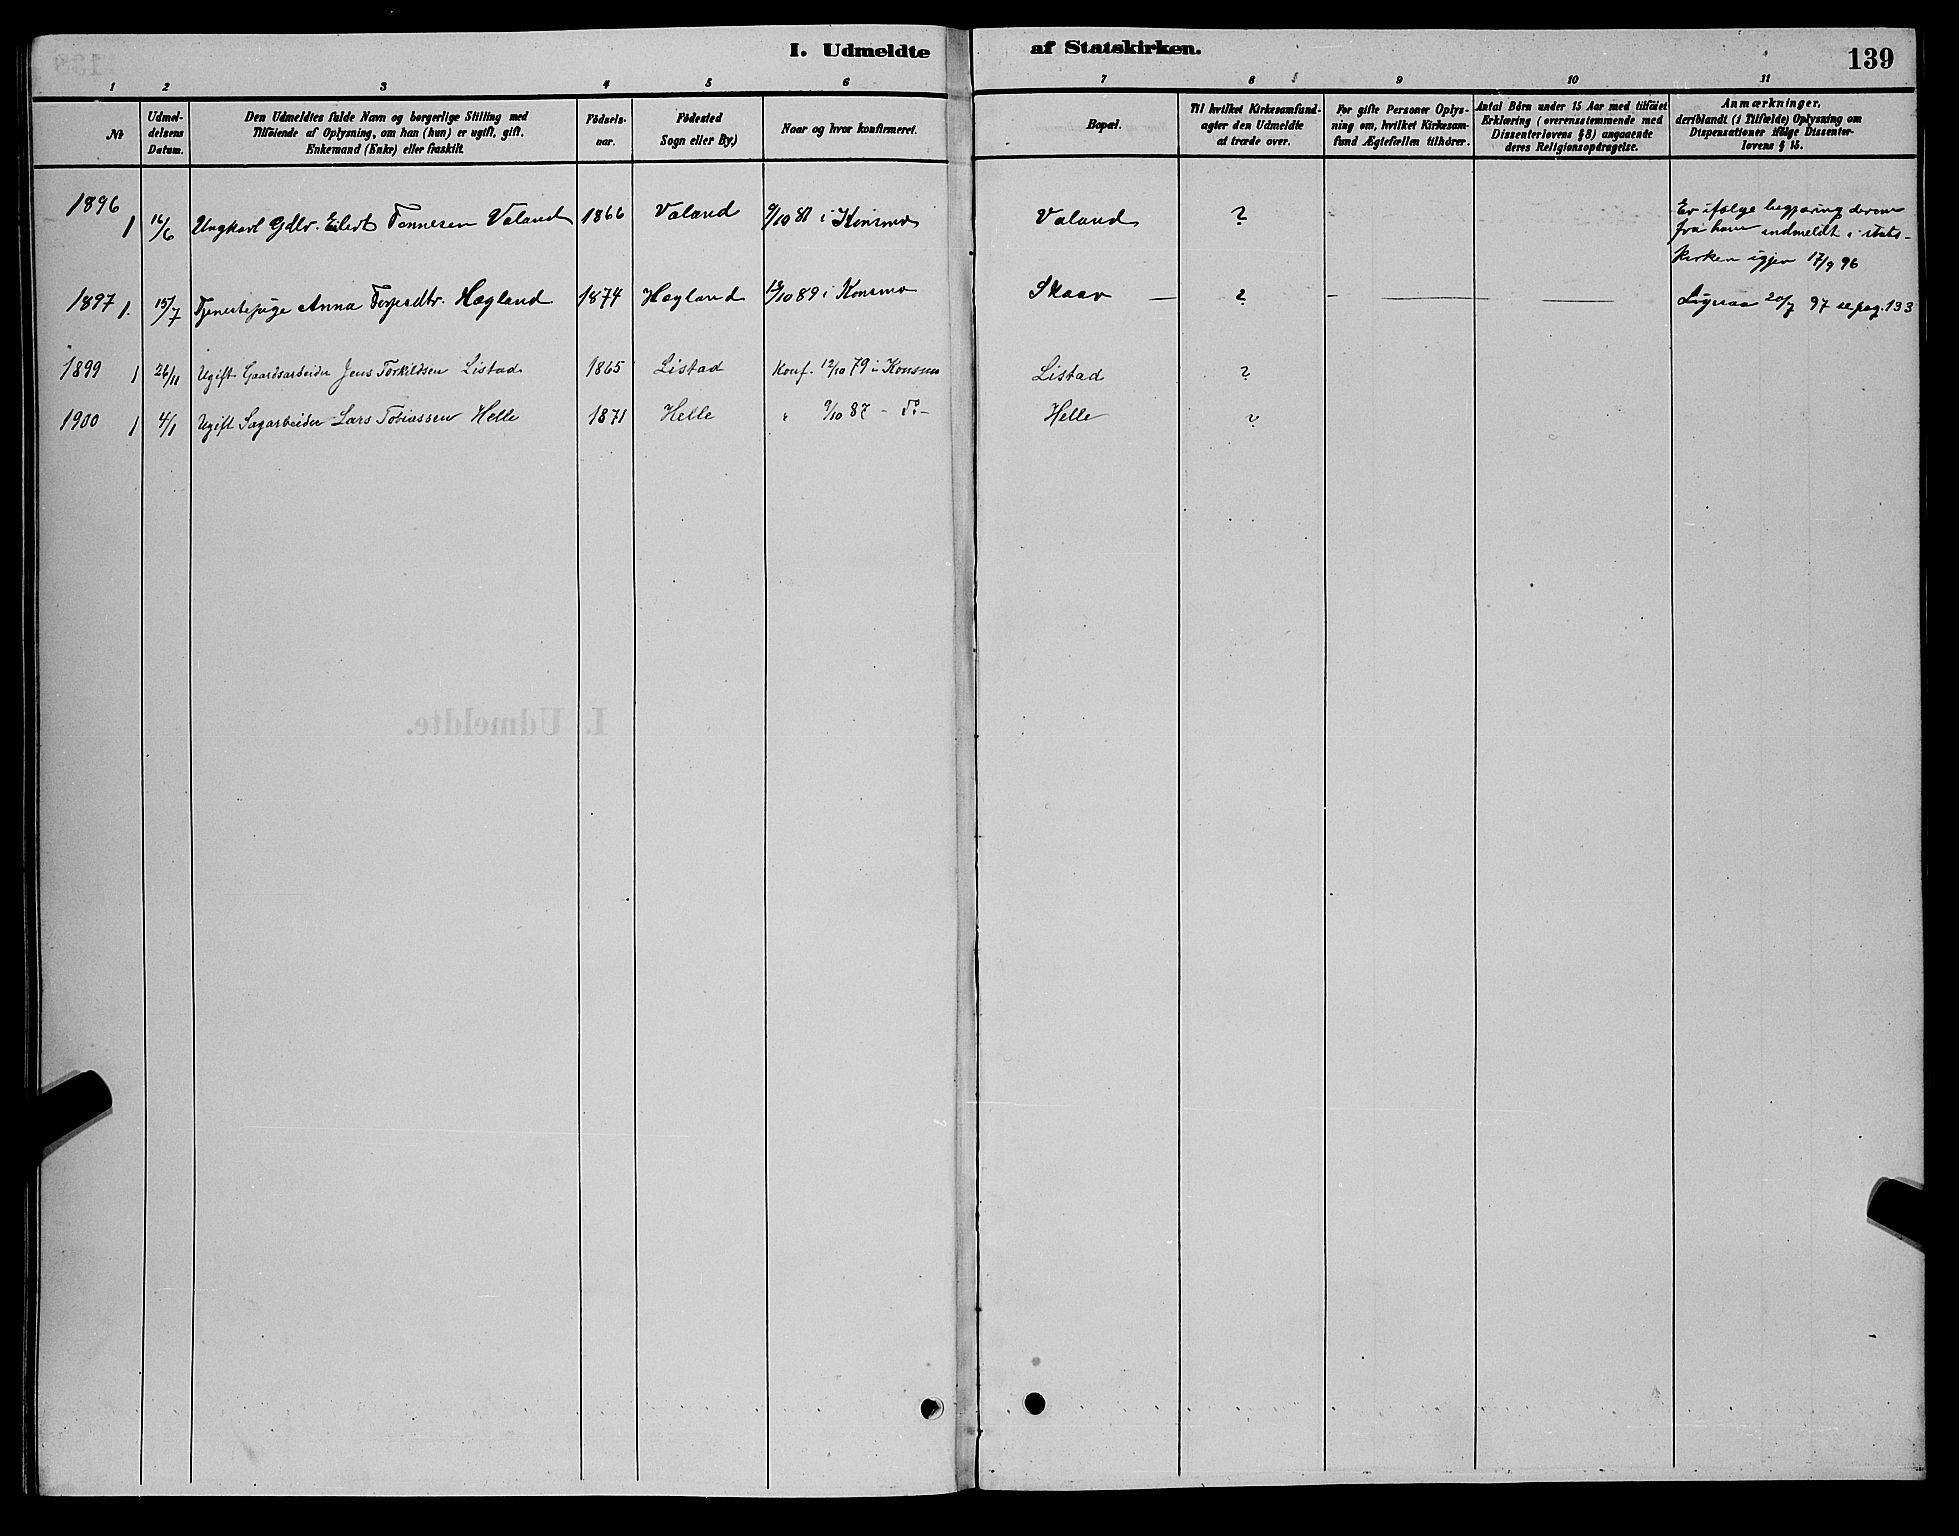 I. Udmeldte af Statskirken.
139
1 2 3 4 5 6 7 8 9 10 11
No
Udmel-
delsens
Datum.
Den Udmeldtes fulde Navn og borgerlige Stilling med
Tilføiende af Oplysning, om han (hun) er ugift, gift,
Enkemand (Enke) eller fraskilt.
Födsels-
aar.
Födested
Sogn eller By,)
Naar og hvor konfirmeret.
Bopæl.
Til hvilket Kirkesamfund-
agter den Udmeldte
at træde over.
For gifte Personer Oplys-
ning om, hvilket Kirkesam-
fund Ægtefællen tilhörer.
Antal Børn under 15 Aar med tilföiet
Erklæring (overensstemmende med
Dissenterlovens § 8) angaaende
deres Religionsopdragelse.
Anmærkninger,
deriblandt (i Tilfælde) Oplysning om
Dispensationer ifölge Dissenter-
lovens § 15.
1896 1 16/6 Ungkarl Gdbr. Eilert Tønnesen Valand 1866 Valand 9/10 81 i Konsmo Valand ? Er ifølge begjæring derom
fra ham indmeldt i stats-
kirken igjen 17/9 96
1897 1. 15/7 Tjenestepige Anna Terjesdtr. Høgland 1874 Høgland 13/10 89 i Konsmo Skaar — ? — — — Ligesaa 20/7 97 se pag. 133
1899 1 26/11 Ugift Gaardsarbeider Jens Torkildsen Listad 1865 Listad Konf. 12/10 79 i Konsmo Listad ?
1900 1 4/1 Ugift Sagarbeider Lars Tobiassen Helle 1871 Helle " 9/10 87 - Do - Helle ?